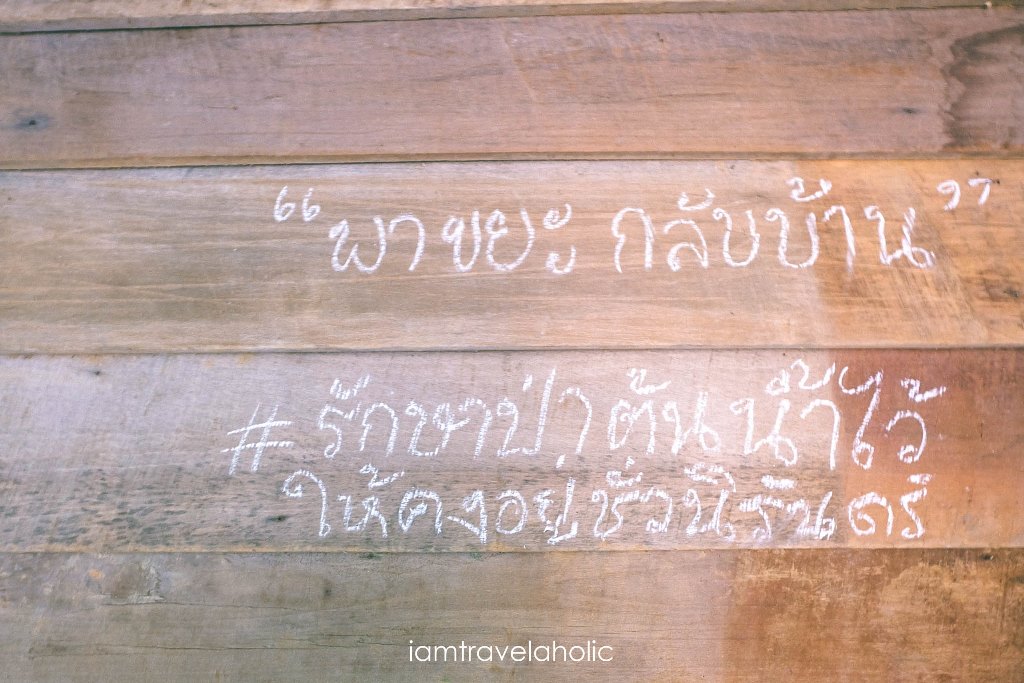 “พาขยะ กลับบ้าน”
#รักษาป่าต้นน้ำไว้
ให้คงอยู่ชั่วนิรันดร์
iamtravelaholic